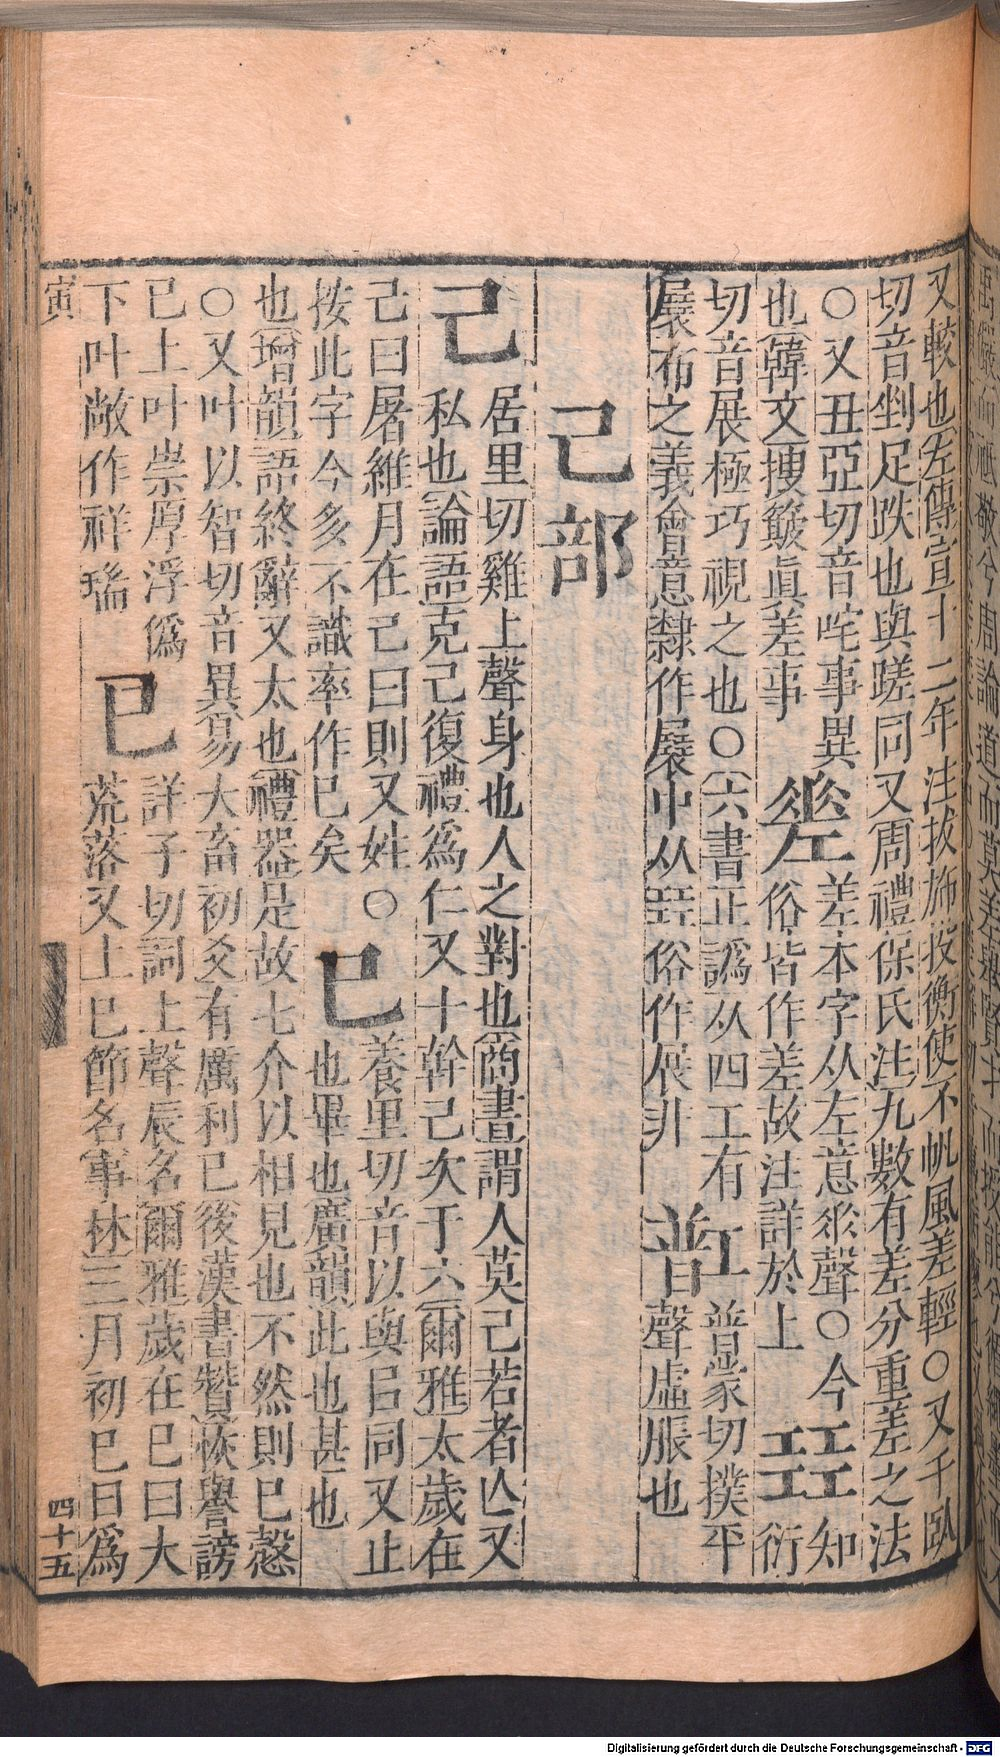 又較也左傳宣十二年注拔斾投衡使不帆風差輕○又千臥
切音剉足跌也與蹉同又周禮保氏注九數有差分重差之法
○又丑亞切音咤事異
也韓文捜簸眞差事
𢀩
差本字从左意𠂹聲○今
俗皆作差故注詳於上
㠭
知
衍
切音展極巧視之也○六書正譌从四工有
展布之義會意隸作展中从㠭俗作展非
普工
普蒙切撲平
聲虛脹也
己部
己
居里切雞上聲身也人之對也商書謂人莫己若者亾又
私也論語克己復禮爲仁又十幹己次于六爾雅太歲在
己曰屠維月在己曰則又姓○
按此字今多不識率作已矣
已
養里切音以與㠯同又止
也畢也廣韻此也甚也
也增韻語終辭又太也禮器是故七介以相見也不然則已愨
○又叶以智切音異易大畜初爻有厲利已後漢書贊恢舉謗
已上叶崇厚浮僞
下叶敝作祥瑞
巳
詳子切詞上聲辰名爾雅歲在巳曰大
荒落又上巳節名事林三月初巳日爲
寅
四十五
Digitalisierung gefördert durch die Deutsche Forschungsgemeinschaft - DFG